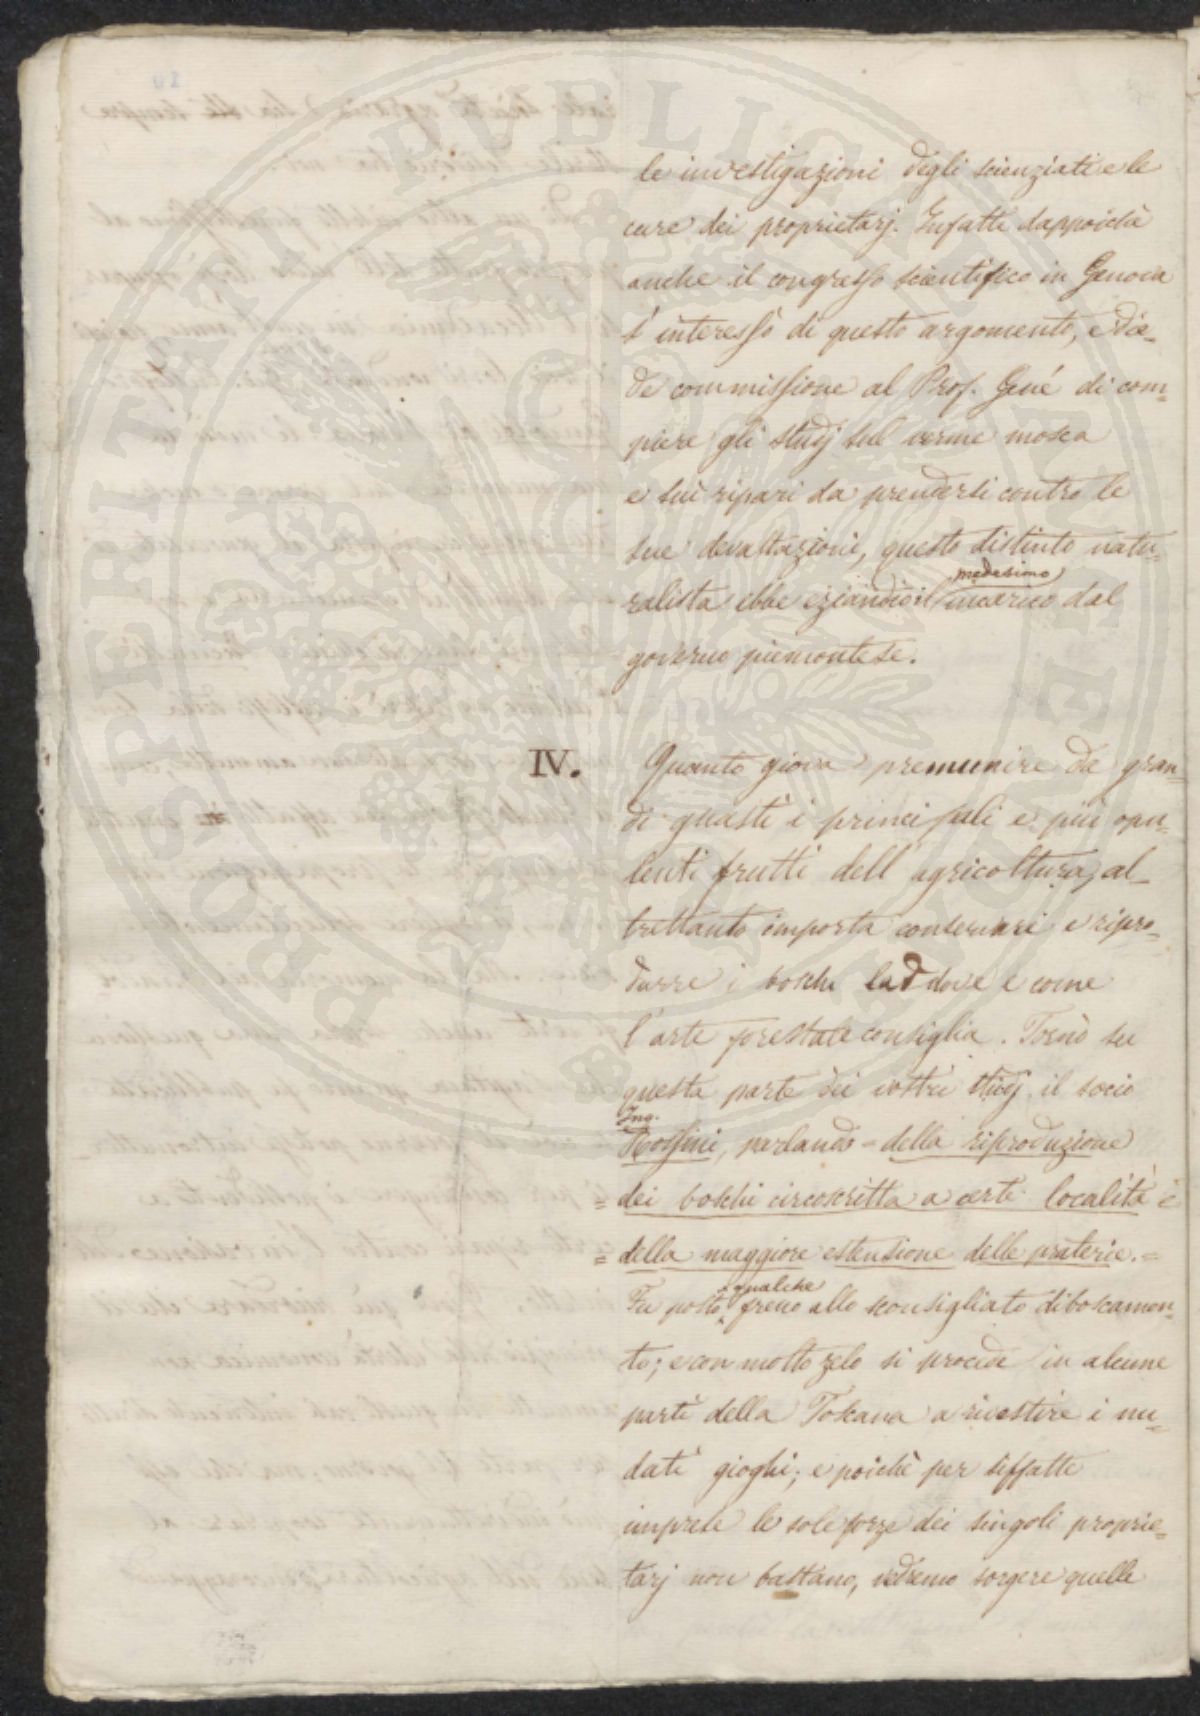 le investigazioni degli scienziati e le
cure dei proprietarj. Infatti dappoichè
anche il congresso scientifico in Genova
s'interessò di questo argomento, e die=
de commissione al Prof. Gené di com=
piere gli studj sul verme mosca
e sui ripari da prendersi contro le
sue devastazioni, questo distinto natu=
medesimo
ralista ebbe eziandio il incarico dal
governo piemontese.
IV. Quanto giova premunire da gran=
di guasti i principali e più opu=
lenti frutti dell'agricoltura, al=
trettanto importa conservari e ripro=
durre i boschi laddove e come
l'arte forestale consiglia. Tornò su
questa parte dei vostri studj il socio
Ing.
Rossini, parlando = della riproduzione
= dei boschi circoscritta a certe località è
= della maggiore estensione delle praterie. =
qualche
Fu posto freno allo sconsigliato diboscamen=
to; e con molto zelo si procede in alcune
parti della Toscana a rivestire i nu=
dati gioghi; e poichè per siffatte
imprese le sole forze dei singoli proprie=
tarj non bastano, vedremo sorgere quelle
PROSPERITATI PUBLICAE AUGENDAE